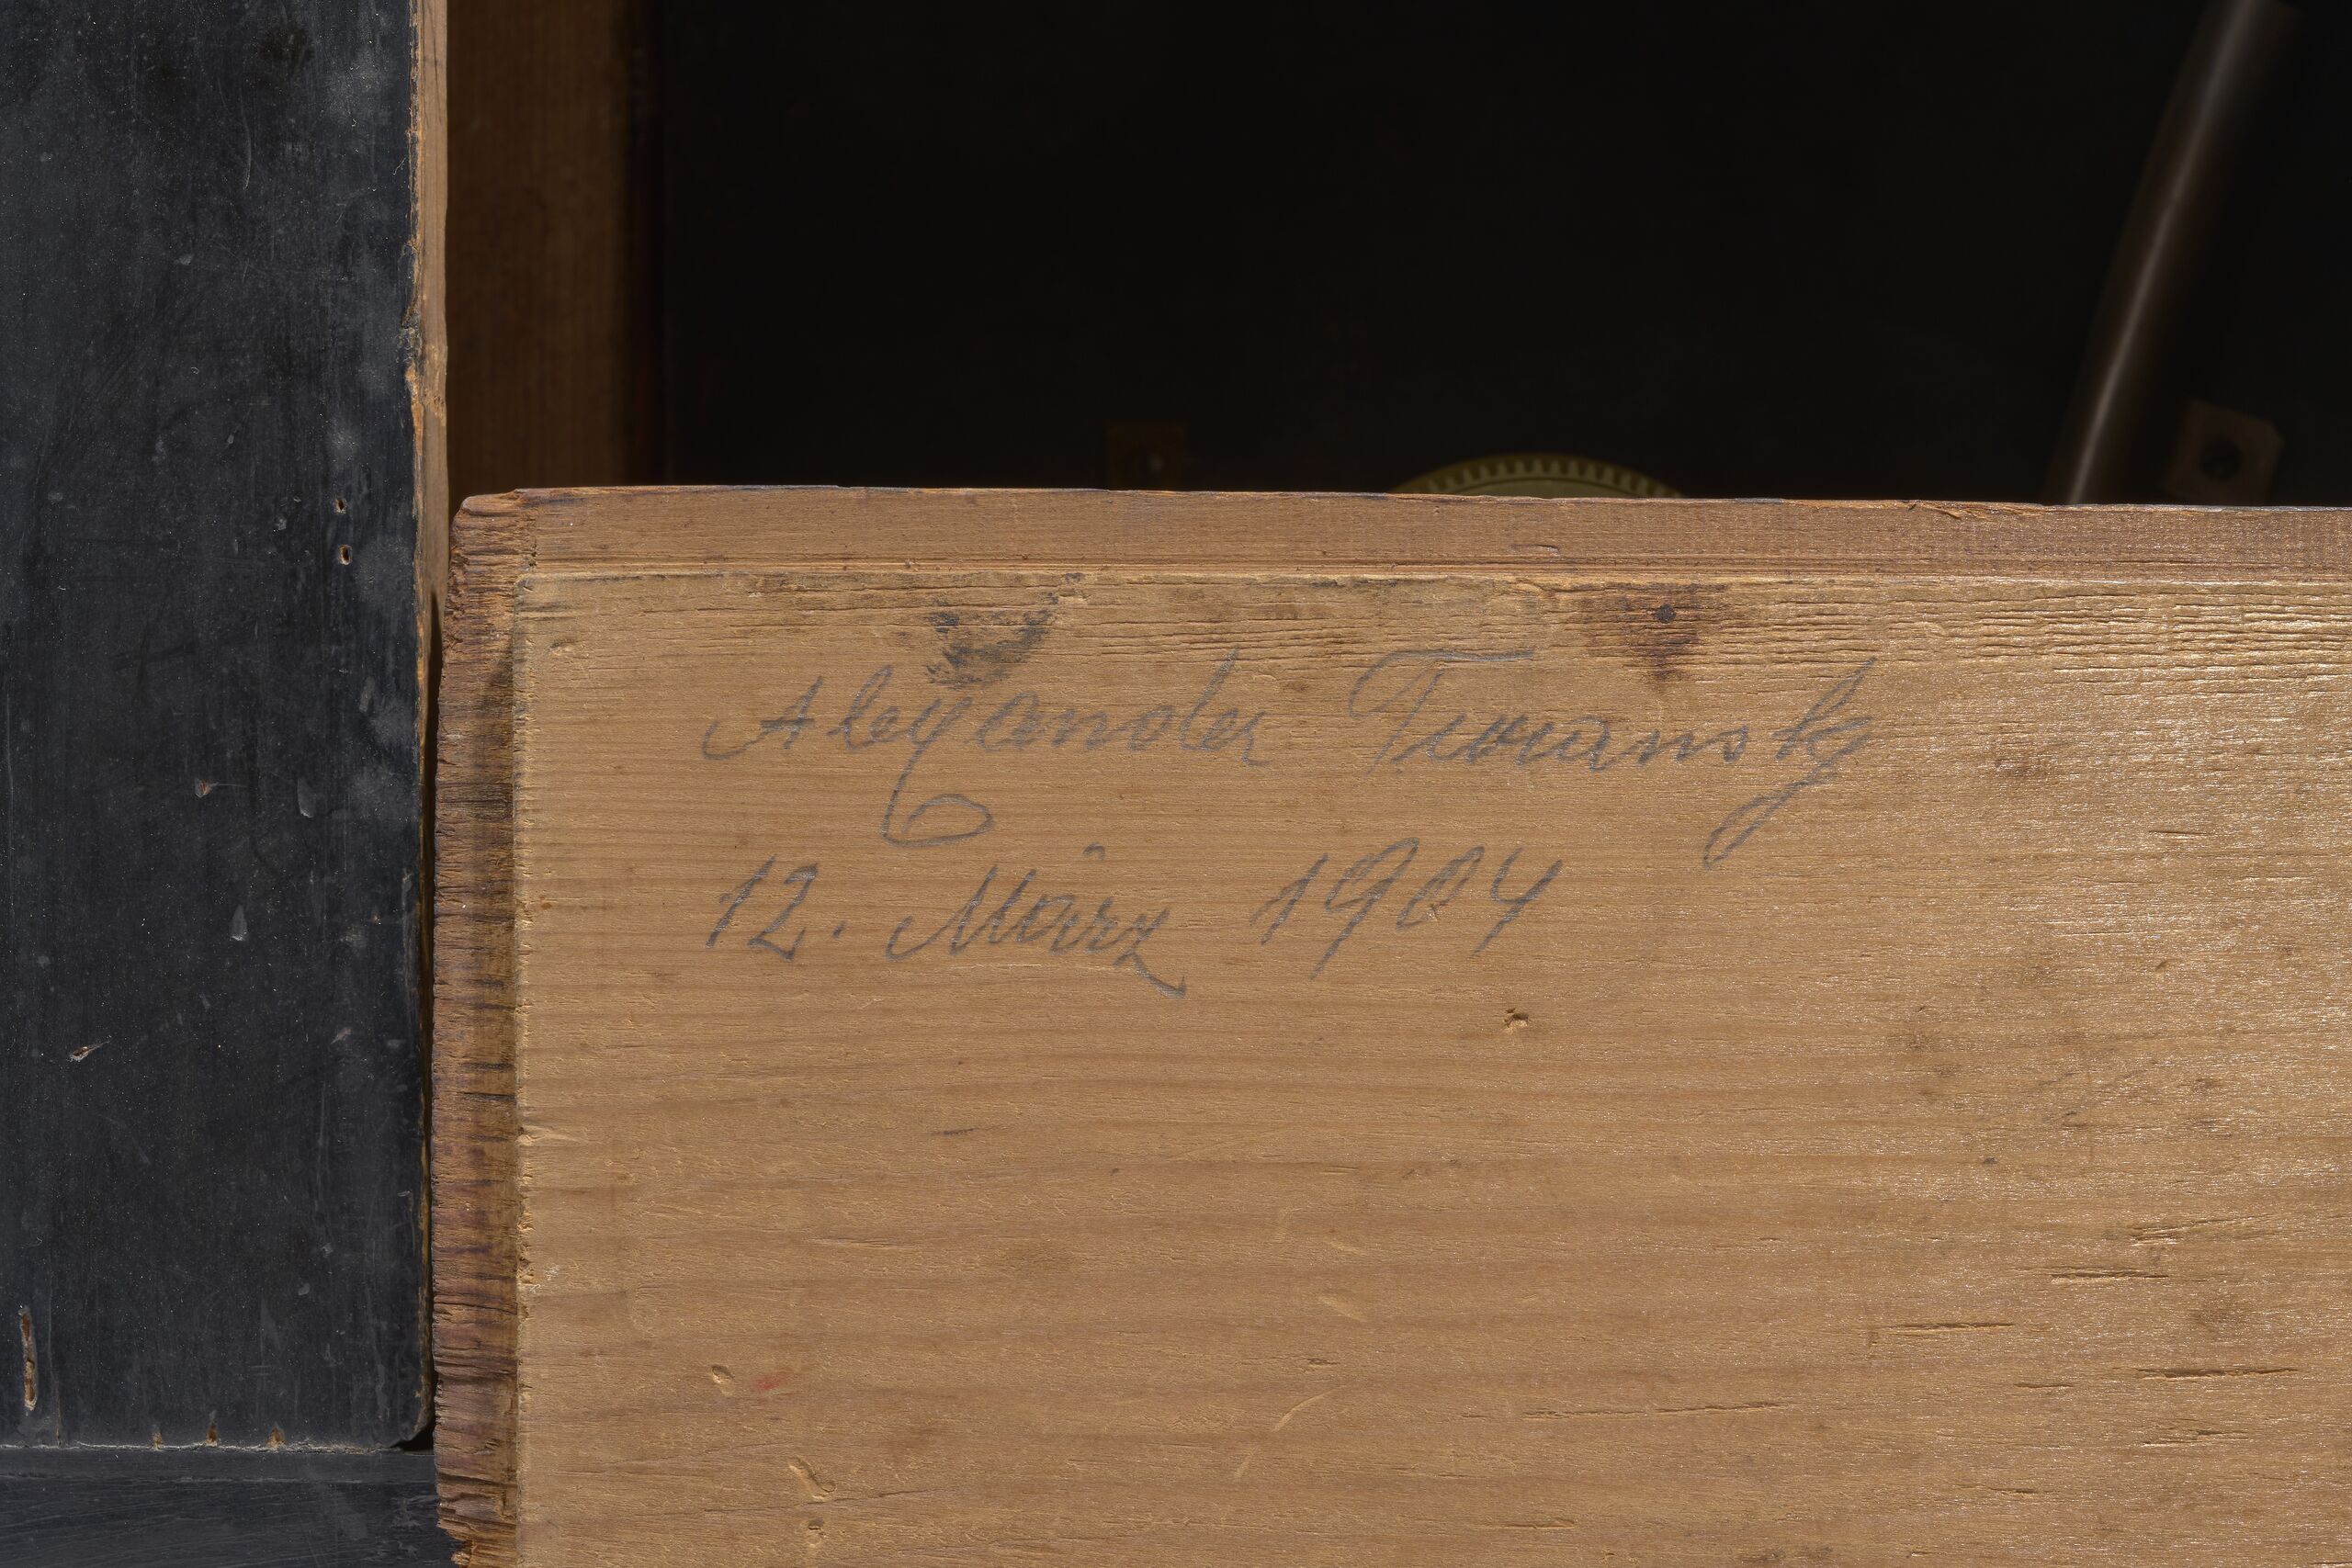 Alexander
12. März 1904